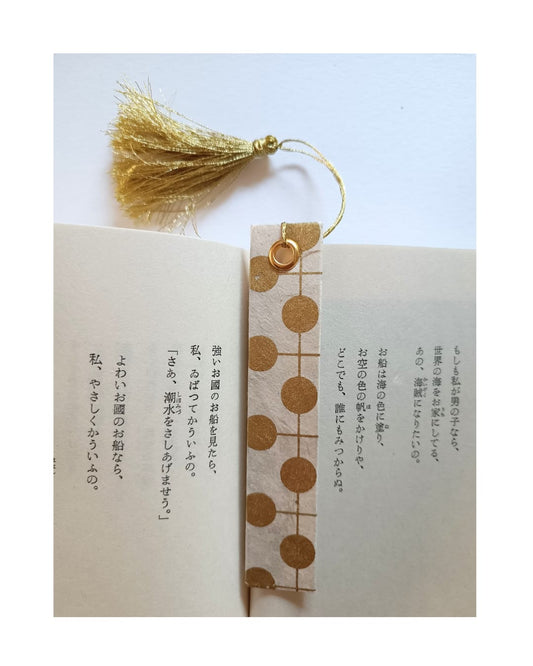 もしも私が男の子なら、
世界の海をお家にしてる、
あの、海賊になりたいの。
お船は海の色に塗り、
お空の色の帆をかけりや、
どこでも、誰にもみつからぬ。
強いお國のお船を見たら、
私、ゐばつてかういふの。
「さあ、潮水をさしあげませう。」
よわいお國のお船なら、
私、やさしくかういふの。